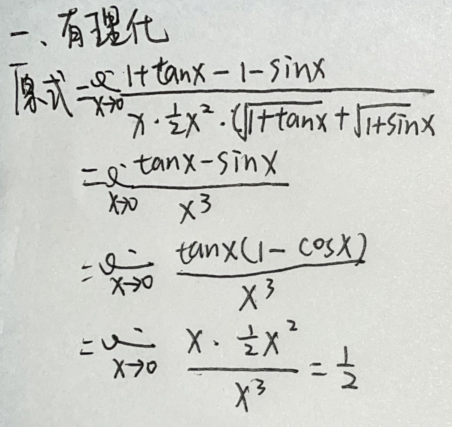 一、有理化
原式=lim x→0 (1+tanx-1-sinx)/(x·½x²·(√(1+tanx)+√(1+sinx))
=lim x→0 (tanx-sinx)/x³
=lim x→0 tanx(1-cosx)/x³
=lim x→0 (x·½x²)/x³=½